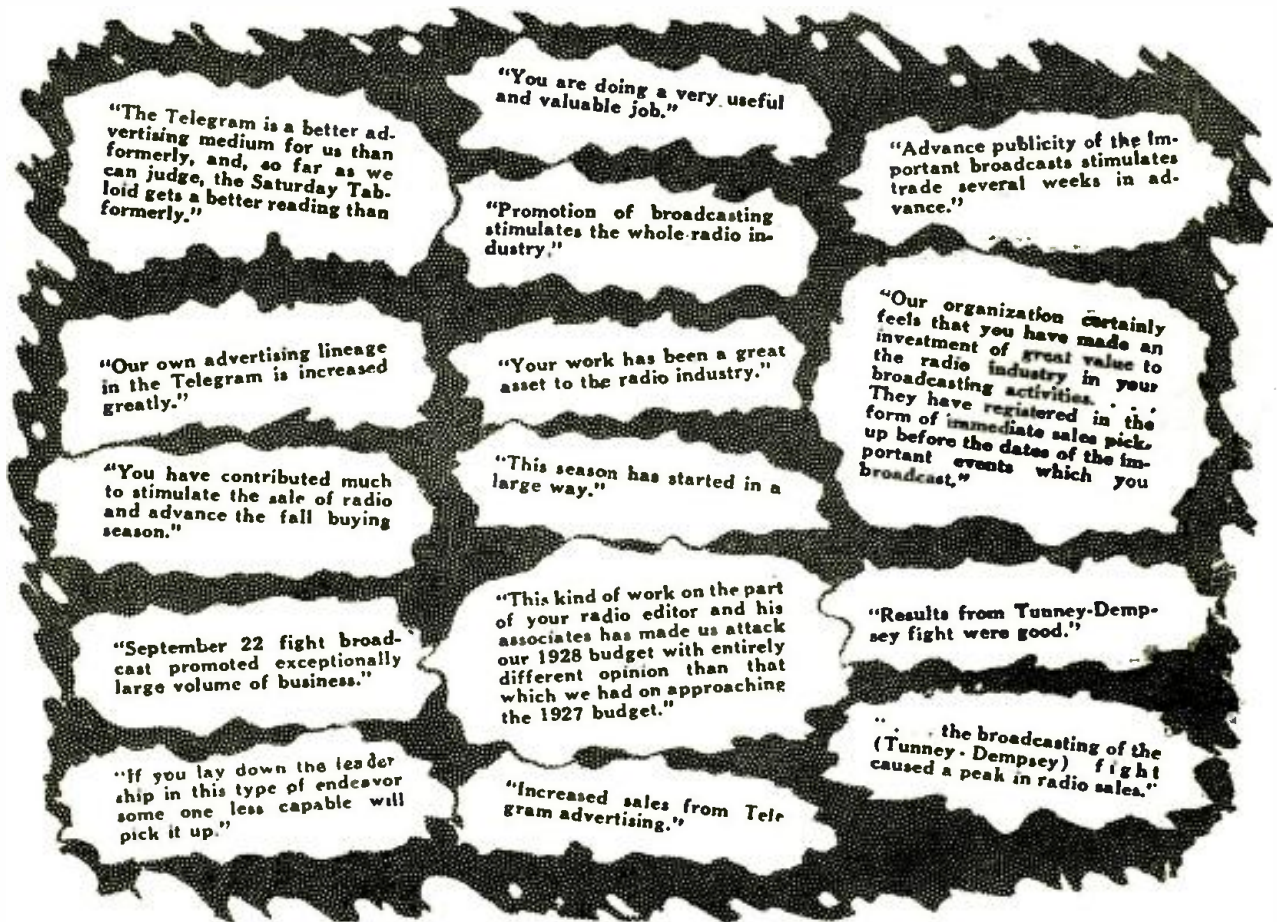 “The Telegram is a better ad-
vertising medium for us than
formerly, and, so far as we
can judge, the Saturday Tab-
loid gets a better reading than
formerly.”
“Our own advertising lineage
in the Telegram is increased
greatly.”
“You have contributed much
to stimulate the sale of radio
and advance the fall buying
season.”
“September 22 fight broad-
cast promoted exceptionally
large volume of business.”
“If you lay down the leader
ship in this type of endeavor
some one less capable will
pick it up.”
“You are doing a very useful
and valuable job.”
“Promotion of broadcasting
stimulates the whole radio in-
dustry.”
“Your work has been a great
asset to the radio industry.”
“This season has started in a
large way.”
“This kind of work on the part
of your radio editor and his
associates has made us attack
our 1928 budget with entirely
different opinion than that
which we had on approaching
the 1927 budget.”
“Increased sales from Tele
gram advertising.”
“Advance publicity of the im-
portant broadcasts stimulates
trade several weeks in ad-
vance.”
“Our organization certainly
feels that you have made an
investment of great value to
the radio industry in your
broadcasting activities. . . .
They have registered in the
form of immediate sales pick-
up before the dates of the im-
portant events which you
broadcast.”
“Results from Tunney-Demp-
sey fight were good.”
“. . . the broadcasting of the
(Tunney-Dempsey) fight
caused a peak in radio sales.”